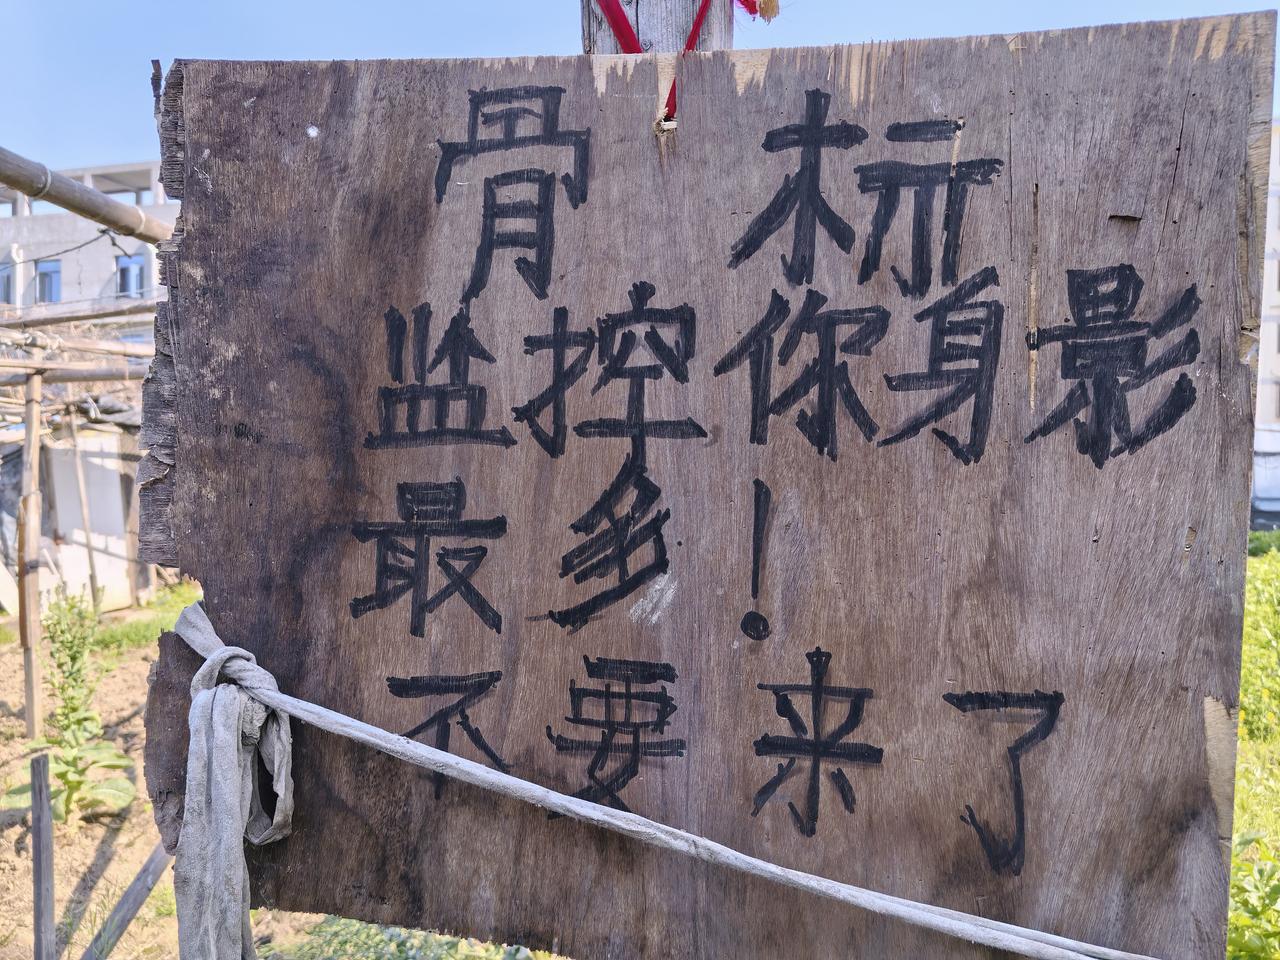 骨 标
监控你身影
最多！
不要来了